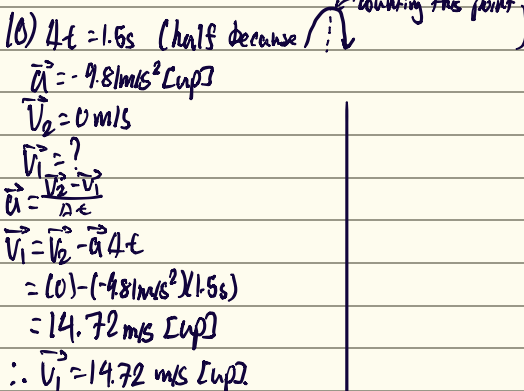 counting this point
10) Δt = 1.5s (half because
a⃗ = -9.81m/s² [up]
V⃗₂ = 0 m/s
V⃗₁ = ?
a⃗ = (V⃗₂ - V⃗₁)/Δt
V⃗₁ = V⃗₂ - a⃗ Δt
= (0) - (-9.81m/s²)(1.5s)
= 14.72 m/s [up]
∴ V⃗₁ = 14.72 m/s [up].